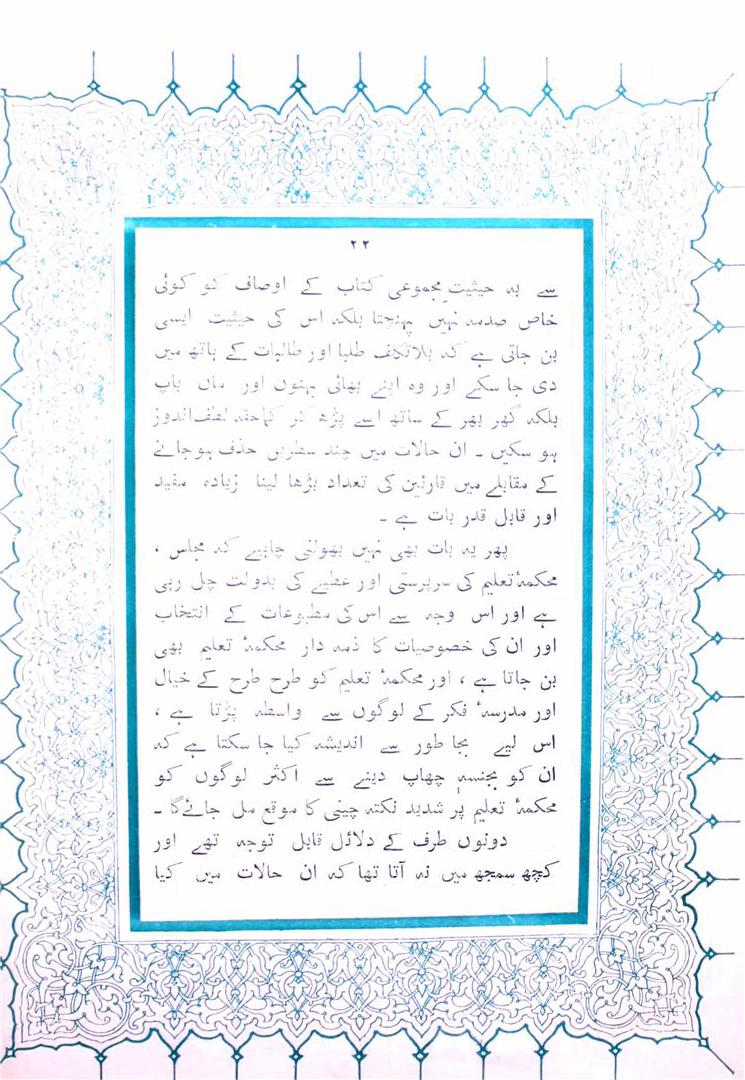 ۲۲
سے بہ حیثیت مجموعی کتاب کے اوصاف کو کوئی
خاص صدمہ نہیں پہنچتا بلکہ اس کی حیثیت ایسی
بن جاتی ہے کہ بلاتکلف طلبا اور طالبات کے ہاتھ میں
دی جا سکے اور وہ اپنے بھائی بہنوں اور ماں باپ
بلکہ گھر بھر کے ساتھ اسے پڑھ کر کماحقہ لطف‌اندوز
ہو سکیں ۔ ان حالات میں چند سطریں حذف ہو جانے
کے مقابلے میں قارئین کی تعداد بڑھا لینا زیادہ مفید
اور قابل قدر بات ہے ۔
پھر یہ بات بھی نہیں بھولنی چاہیے کہ مجلس ،
محکمۂ تعلیم کی سرپرستی اور عطیے کی بدولت چل رہی
ہے اور اس وجہ سے اس کی مطبوعات کے انتخاب
اور ان کی خصوصیات کا ذمہ دار محکمۂ تعلیم بھی
بن جاتا ہے ، اور محکمۂ تعلیم کو طرح طرح کے خیال
اور مدرسۂ فکر کے لوگوں سے واسطہ پڑتا ہے ،
اس لیے بجا طور سے اندیشہ کیا جا سکتا ہے کہ
ان کو بجنسہٖ چھاپ دینے سے اکثر لوگوں کو
محکمۂ تعلیم پر شدید نکتہ چینی کا موقع مل جائے گا ۔
دونوں طرف کے دلائل قابل توجہ تھے اور
کچھ سمجھ میں نہ آتا تھا کہ ان حالات میں کیا